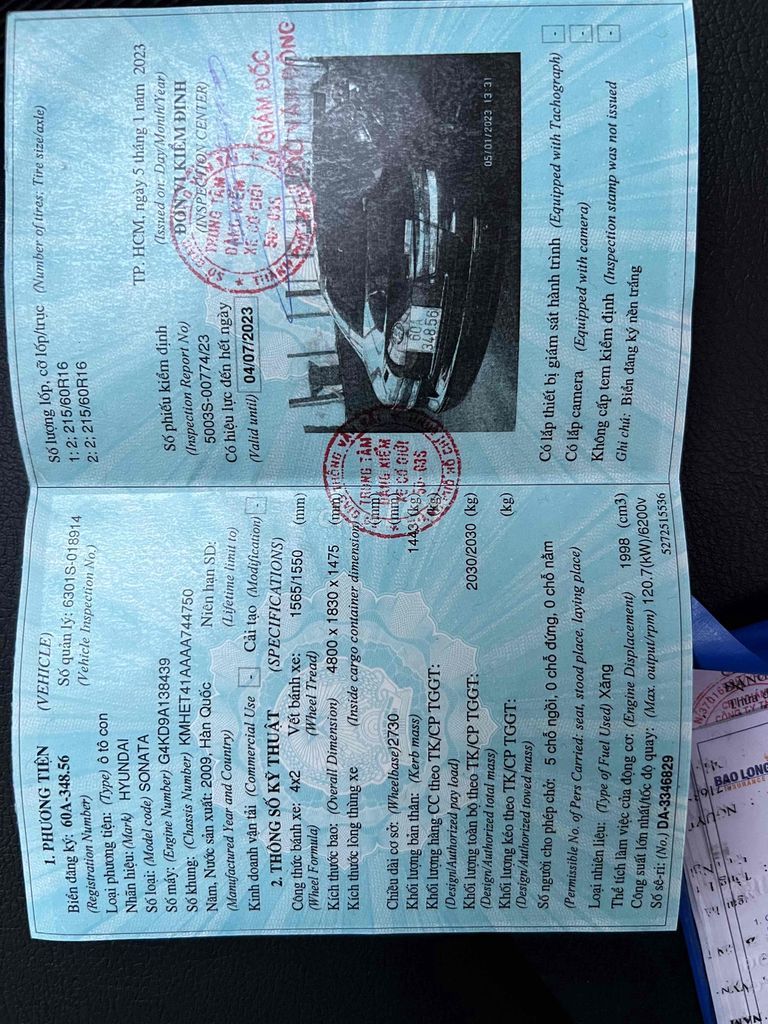 1. PHƯƠNG TIỆN (VEHICLE)
Biển đăng ký: 60A-348.56 Số quản lý: 6301S-018914
(Registration Number) (Vehicle Inspection No.)
Loại phương tiện: (Type) ô tô con
Nhãn hiệu: (Mark) HYUNDAI
Số loại: (Model code) SONATA
Số máy: (Engine Number) G4KD9A138439
Số khung: (Chassis Number) KMHET41AAAA744750
Năm, Nước sản xuất: 2009, Hàn Quốc Niên hạn SD:
(Manufactured Year and Country) (Lifetime limit to)
Kinh doanh vận tải (Commercial Use) - Cải tạo (Modification) -
2. THÔNG SỐ KỸ THUẬT (SPECIFICATIONS)
Công thức bánh xe: 4x2 Vết bánh xe: 1565/1550 (mm)
(Wheel Formula) (Wheel Tread)
Kích thước bao: (Overall Dimension) 4800 x 1830 x 1475 (mm)
Kích thước lòng thùng xe (Inside cargo container dimension) (mm)
Chiều dài cơ sở: (Wheelbase) 2730 (mm)
Khối lượng bản thân: (Kerb mass) 1443 (kg)
Khối lượng hàng CC theo TK/CP TGGT: (kg)
(Design/Authorized pay load)
Khối lượng toàn bộ theo TK/CP TGGT: 2030/2030 (kg)
(Design/Authorized total mass)
Khối lượng kéo theo TK/CP TGGT: (kg)
(Design/Authorized towed mass)
Số người cho phép chở: 5 chỗ ngồi, 0 chỗ đứng, 0 chỗ nằm
(Permissible No. of Pers Carried: seat, stood place, laying place)
Loại nhiên liệu: (Type of Fuel Used) Xăng
Thể tích làm việc của động cơ: (Engine Displacement) 1998 (cm3)
Công suất lớn nhất/tốc độ quay: (Max. output/rpm) 120.7(kW)/6200v
Số sê-ri: (No.) DA-3346829 5272515536
Số lượng lốp, cỡ lốp/trục (Number of tires: Tire size/axle)
1: 2; 215/60R16
2: 2; 215/60R16
TP. HCM, ngày 5 tháng 1 năm 2023
(Issued on: Day/Month/Year)
Số phiếu kiểm định ĐƠN VỊ KIỂM ĐỊNH
(Inspection Report No) (INSPECTION CENTER)
5003S-00774/23
Có hiệu lực đến hết ngày
(Valid until) 04/07/2023
TRUNG TÂM
ĐĂNG KIỂM
XE CƠ GIỚI
50-03S
GIÁM ĐỐC
60A
348.56
05/01/2023 13:31
TRUNG TÂM
ĐĂNG KIỂM
XE CƠ GIỚI
50-03S
Có lắp thiết bị giám sát hành trình (Equipped with Tachograph) -
Có lắp camera (Equipped with camera) -
Không cấp tem kiểm định (Inspection stamp was not issued -
Ghi chú: Biển đăng ký nền trắng
BAO LONG
INSURANCE